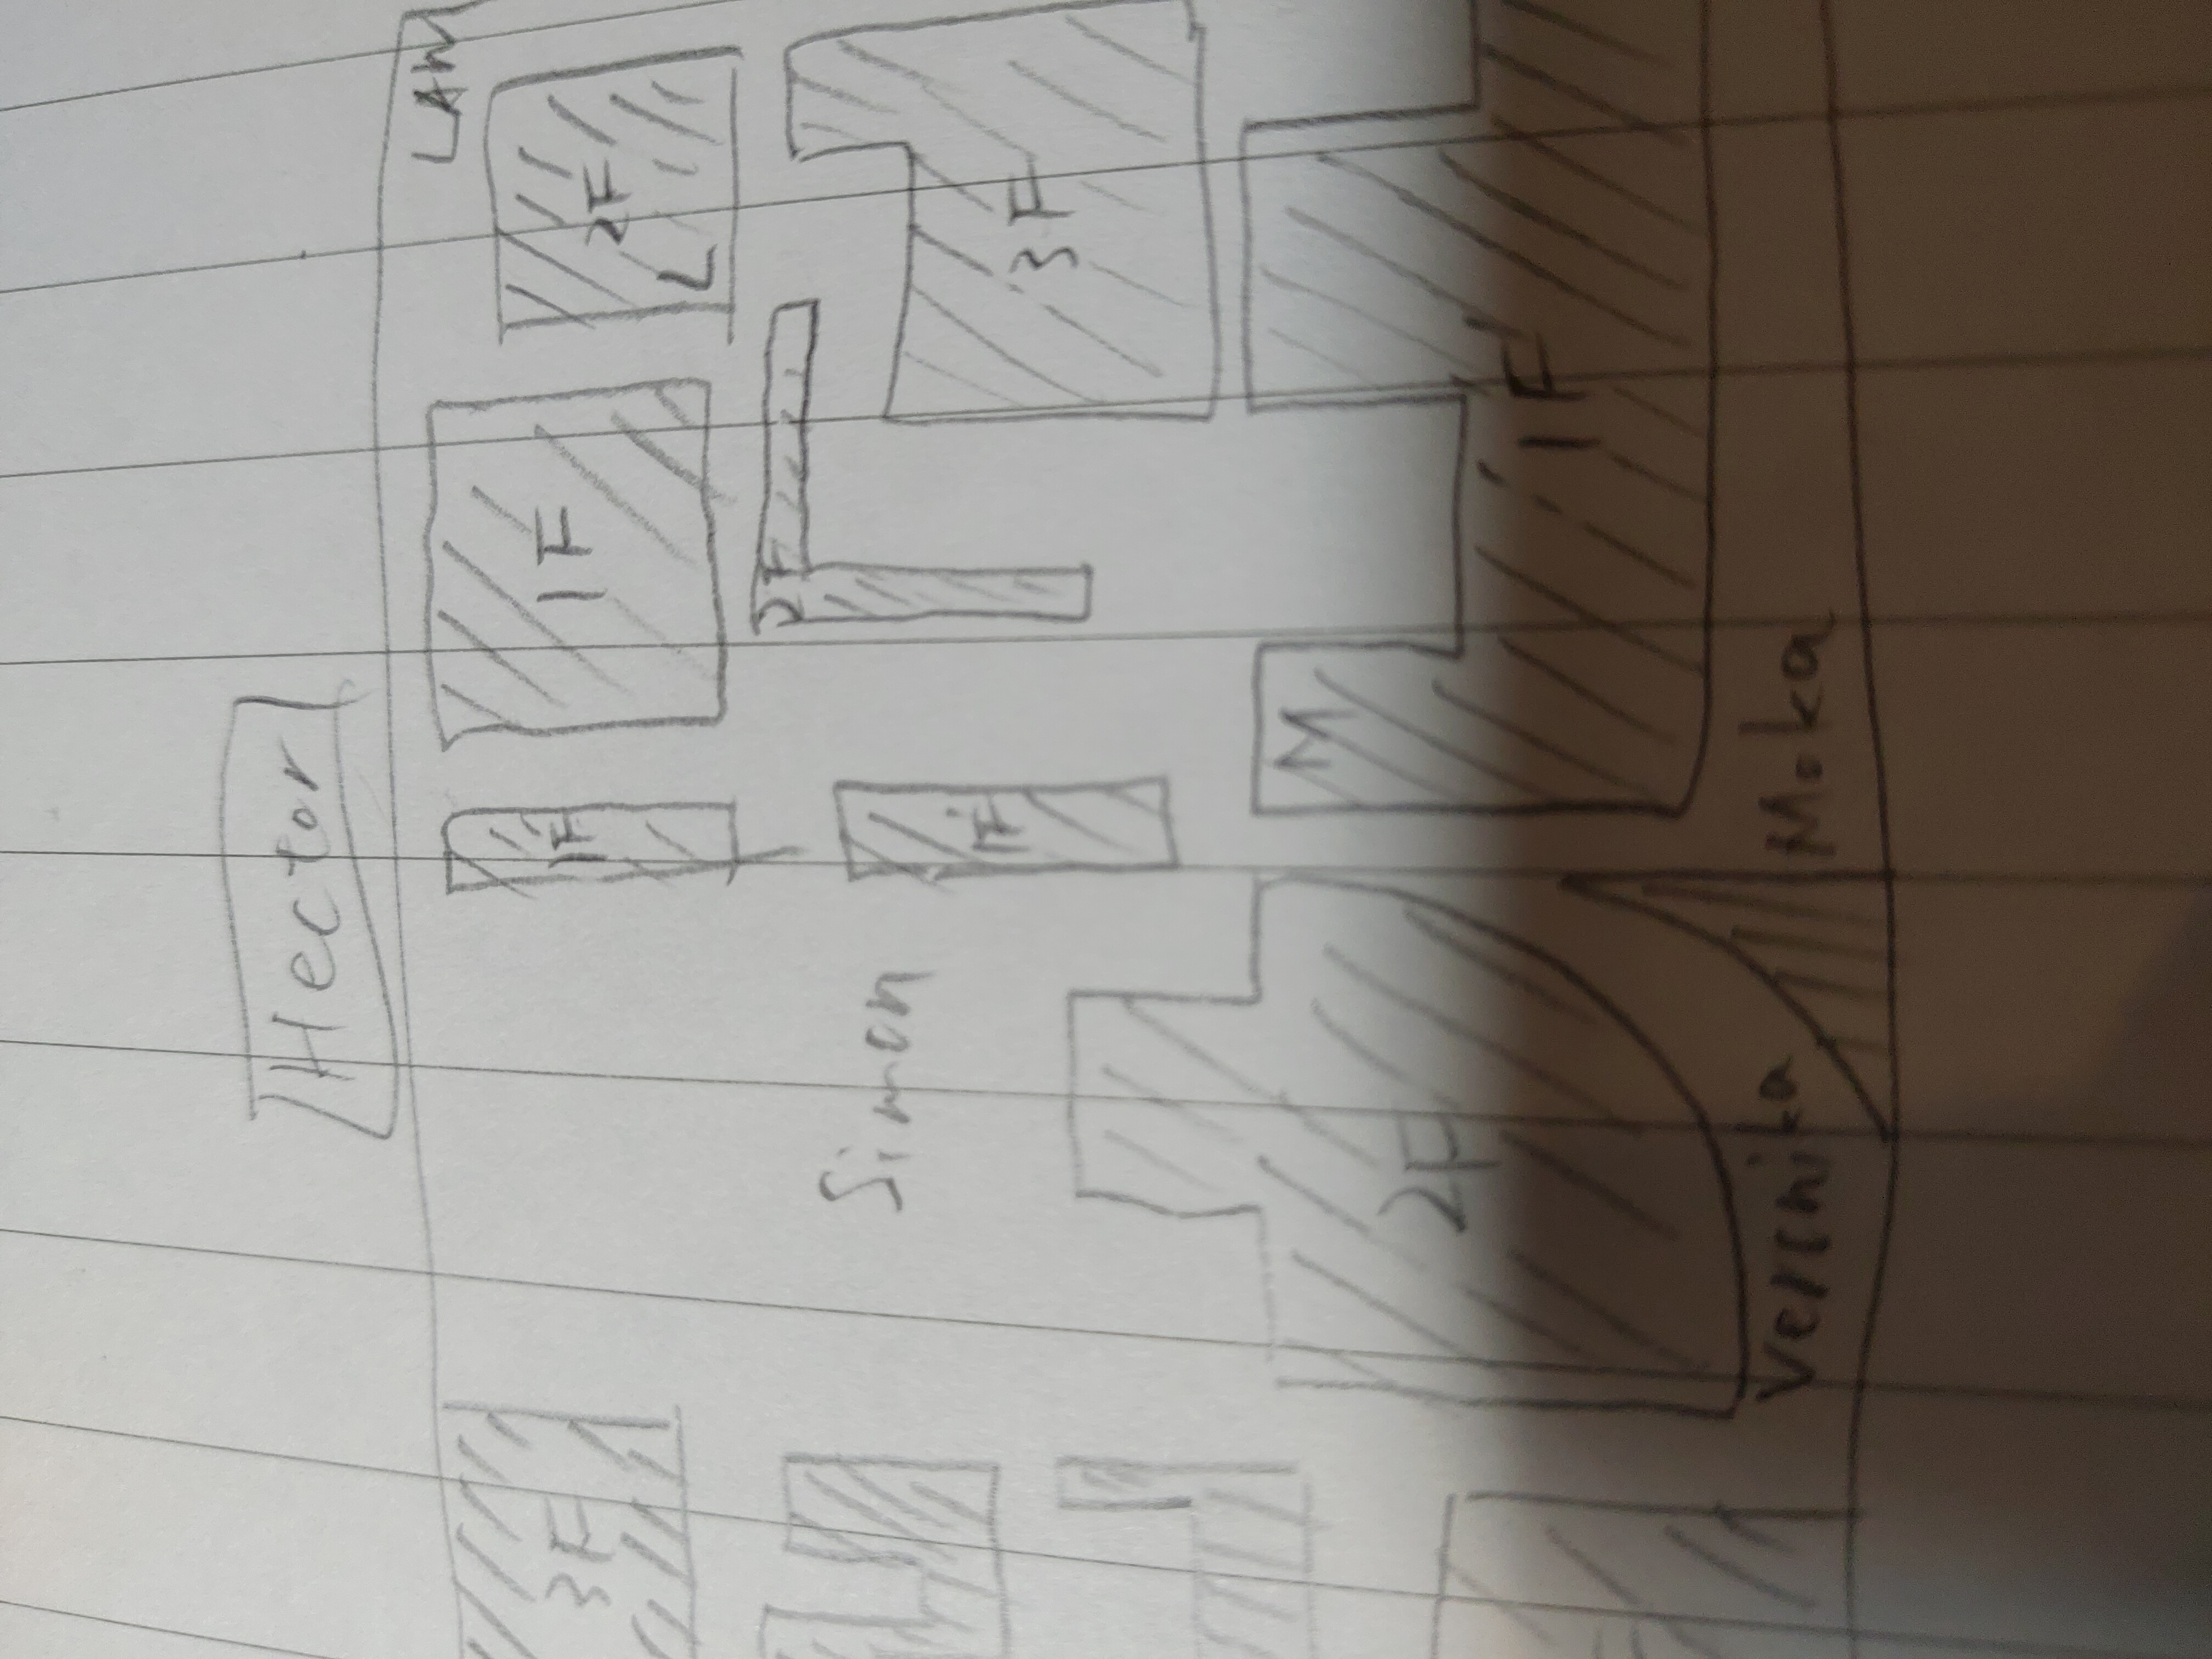 Hector
LAW
3F
1F
1F
2F
L
2F
Simon
1F
3F
M
2F
1F
Veronika
Moka